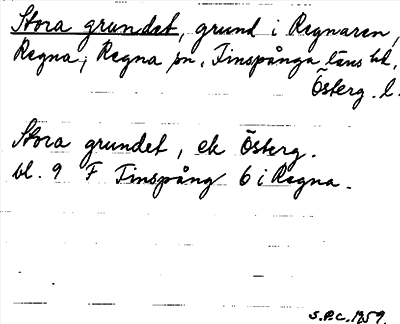 Stora grundet, grund i Regnaren,
Regna; Regna sn, Finspånga läns hd,
Österg. l.
Stora grundet, ek Österg.
bl. 9 F Finspång 6 i Regna.
S.P.C. 1959.